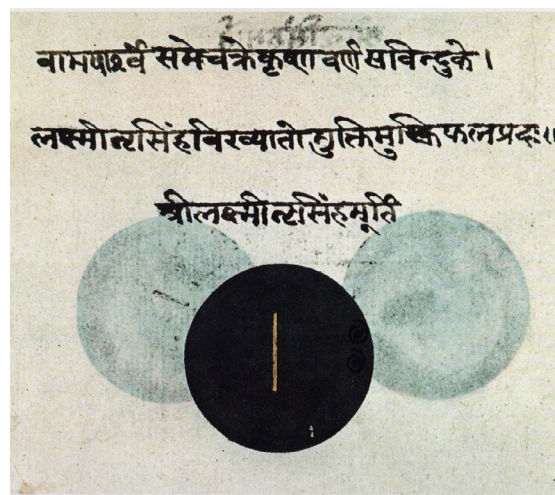 वामपार्श्वे समेचक्रे कृष्णवर्ण सविन्दुके ।
लक्ष्मीनृसिंहविख्यातो भुक्तिमुक्तिफलप्रदः॥
श्रीलक्ष्मीनृसिंहमूर्ति